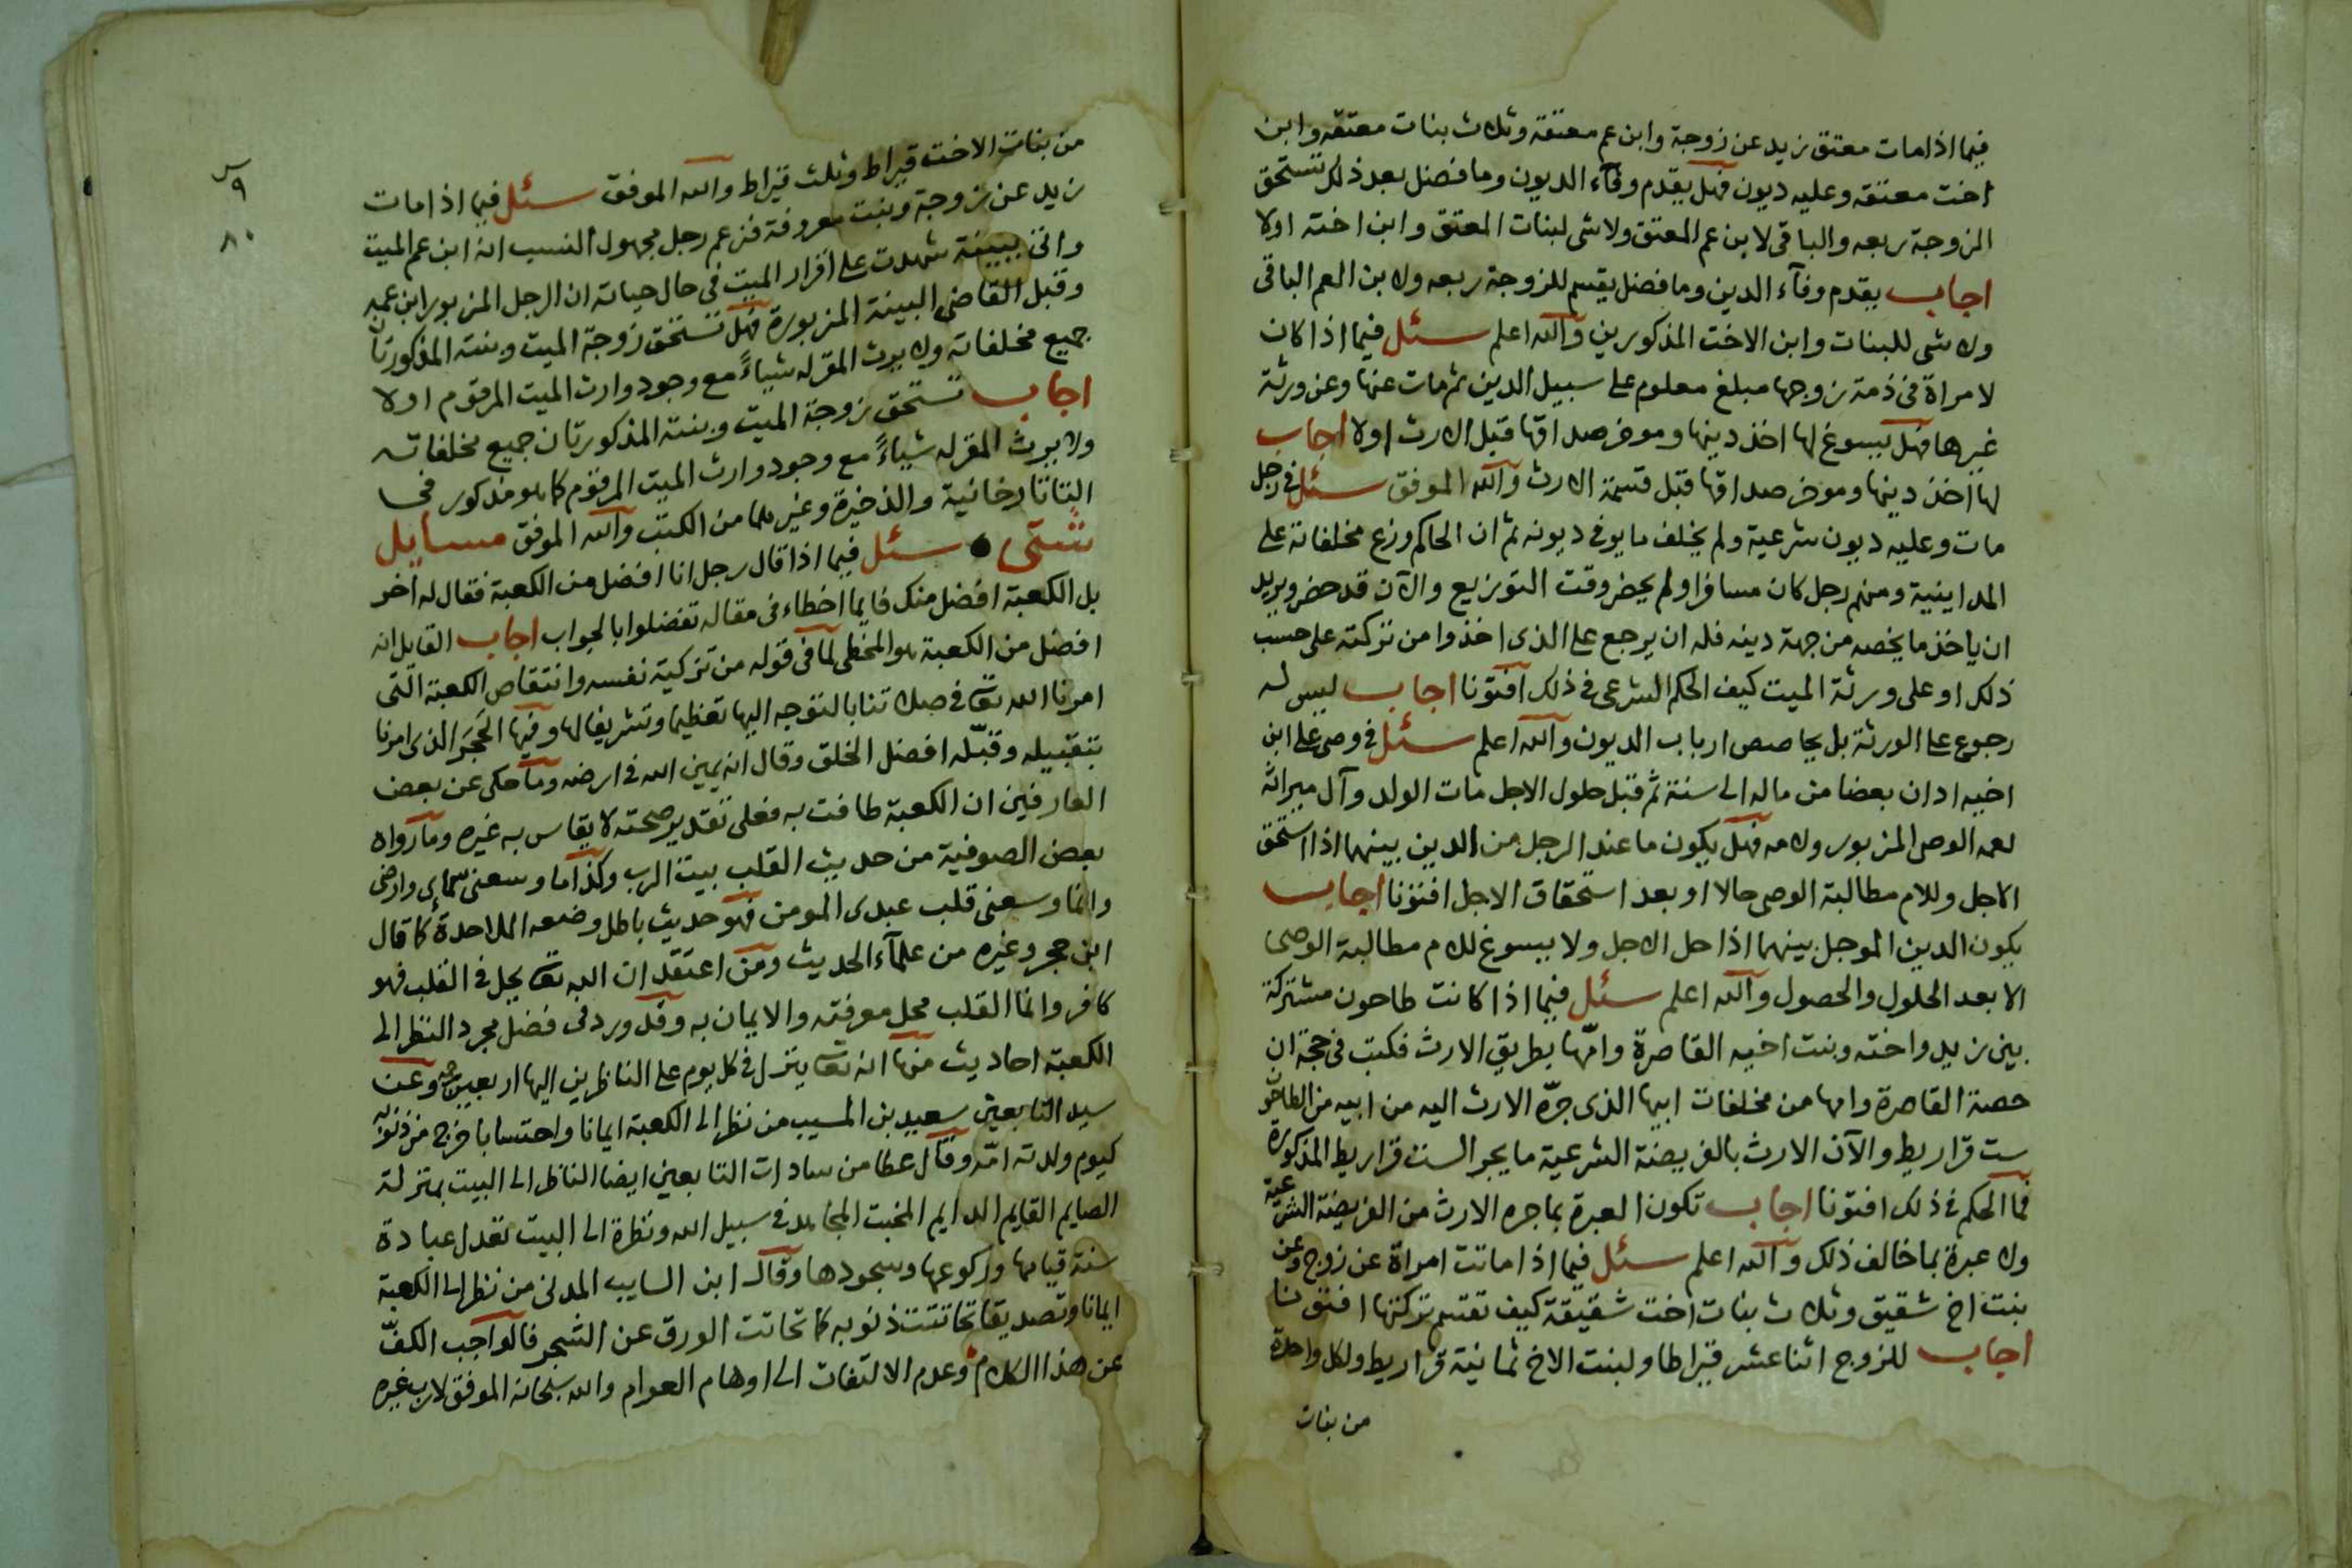 فيما اذا مات معتق زيد عن زوجة وابن عم معتقه وثلاث بنات معتقه وابن
اخت معتقه وعليه ديون فهل يقدم وفآء الديون وما فضل بعد ذلك تستحق
الزوجة ربعه والباقى لابن عم المعتق ولا شى لبنات المعتق وابن اخته اولا
اجاب يقدم وفآء الدين وما فضل يقسم للزوجة ربعه ولابن العم الباقى
ولا شى للبنات وابن الاخت المذكورين والله اعلم سئل فيما اذا كان
لامراة فى ذمة زوجها مبلغ معلوم على سبيل الدين ثم مات عنها وعن ورثة
غيرها فهل يسوغ لها اخذ دينها وموخر صداقها قبل الارث اولا اجاب
لها اخذ دينها وموخر صداقها قبل قسمة الارث والله الموفق سئل فى رجل
مات وعليه ديون شرعية ولم يخلف ما يوفى ديونه ثم ان الحاكم وزع مخلفاته على
المداينية ومنهم رجل كان مسافرا ولم يحضر وقت التوزيع والآن قد حضر ويريد
ان ياخذ ما يخصه من جهة دينه فله ان يرجع على الذى اخذوا من تركته على حسب
ذلك او على ورثة الميت كيف الحكم الشرعى فى ذلك افتونا اجاب ليس له
رجوع على الورثة بل يحاصص ارباب الديون والله اعلم سئل فى وصى على ابن
اخيه ادان بعضا من ماله الى سنة ثم قبل حلول الاجل مات الولد وآل ميراثه
لعمه الوصى المزبور ولامه فهل يكون ما عند الرجل من الدين بينهما اذا استحق
الاجل وللام مطالبة الوصى حالا او بعد استحقاق الاجل افتونا اجاب
يكون الدين الموجل بينهما اذا حل الاجل ولا يسوغ للام مطالبة الوصى
الا بعد الحلول والحصول والله اعلم سئل فيما اذا كانت طاحون مشتركة
بين زيد واخته وبنت اخيه القاصرة وامّها بطريق الارث فكتب فى حجة ان
حصة القاصرة وامها من مخلفات ابيها الذى جرّه الارث اليه من ابيه من الطاحون
ست قراريط والآن الارث بالفريضة الشرعية ما يجر الست قراريط المذكورة
فما الحكم فى ذلك افتونا اجاب تكون العبرة بما جره الارث من الفريضة الشرعية
ولا عبرة بما خالف ذلك والله اعلم سئل فيما اذا ماتت امراة عن زوج وعن
بنت اخ شقيق وثلاث بنات اخت شقيقة كيف تقسم تركتها افتونا
اجاب للزوج اثنا عشر قيراطا ولبنت الاخ ثمانية قراريط ولكل واحدة
من بنات
٩
٨٠
من بنات الاخت قيراط وثلث قيراط والله الموفق سئل فيما اذا مات
زيد عن زوجة وبنت معروفة فزعم رجل مجهول النسب انه ابن عم الميت
واتى ببينة شهدت على اقرار الميت فى حال حياته ان الرجل المزبور ابن عمه
وقبل القاضى البينة المزبورة فهل تستحق زوجة الميت وبنته المذكورتان
جميع مخلفاته ولا يرث المقر له شياءً مع وجود وارث الميت المرقوم اولا
اجاب تستحق زوجة الميت وبنته المذكورتان جميع مخلفاته
ولا يرث المقر له شياءً مع وجود وارث الميت المرقوم كما هو مذكور فى
التاتارخانية والذخيرة وغيرهما من الكتب والله الموفق مسايل
شتى سئل فيما اذا قال رجل انا افضل من الكعبة فقال له اخر
بل الكعبة افضل منك فايما اخطاء فى مقاله تفضلوا بالجواب اجاب القايل انه
افضل من الكعبة هو المخطى لما فى قوله من تزكية نفسه وانتقاص الكعبة التى
امرنا الله تعا فى صلاتنا بالتوجه اليها تعظيما وتشريفا لها وفيها الحَجَر الذى امرنا
بتقبيله وقبّله افضل الخلق وقال انه يمين الله فى ارضه وما حكى عن بعض
العارفين ان الكعبة طافت به فعلى تقدير صحته لا يقاس به غيره وما رواه
بعض الصوفية من حديث القلب بيت الرب وكذا ما وسعنى سمائى وارضى
وانما وسعنى قلب عبدى المومن فهو حديث باطل وضعه الملاحدة كما قال
ابن حجر وغيره من علمآء الحديث ومن اعتقد ان الله تعا يحل فى القلب فهو
كافر وانما القلب محل معرفته والايمان به وقد ورد فى فضل مجرد النظر الى
الكعبة احاديث منها انه تعا ينزل فى كل يوم على الناظرين اليها اربعين رحمة وعن
سيد التابعين سعيد بن المسيب من نظر الى الكعبة ايمانا واحتسابا خرج من ذنوبه
كيوم ولدته امّه وقال عطا من سادات التابعين ايضا الناظر الى البيت بمنزلة
الصايم القايم الدايم المخبت المجاهد فى سبيل الله ونظرة الى البيت تعدل عبادة
سنة قيامها وركوعها وسجودها وقال ابن السايب المدنى من نظر الى الكعبة
ايمانا وتصديقا تحاتت ذنوبه كما تحاتت الورق عن الشجر فالواجب الكفّ
عن هذا الكلام وعدم الالتفات الى اوهام العوام والله سبحانه الموفق لا رب غيره